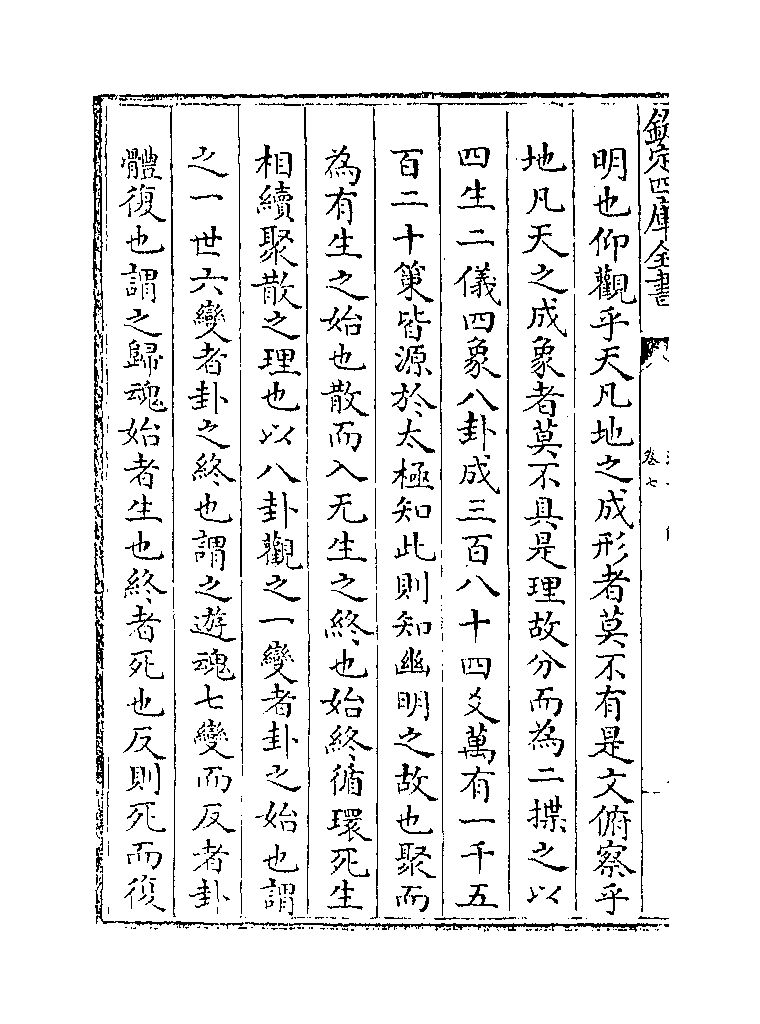 欽定四庫全書
卷七
明也仰觀乎天凡地之成形者莫不有是文俯察乎
地凡天之成象者莫不具是理故分而為二揲之以
四生二儀四象八卦成三百八十四爻萬有一千五
百二十策皆源於太極知此則知幽明之故也聚而
為有生之始也散而入无生之終也始終循環死生
相續聚散之理也以八卦觀之一變者卦之始也謂
之一世六變者卦之終也謂之遊魂七變而反者卦
體復也謂之歸魂始者生也終者死也反則死而復